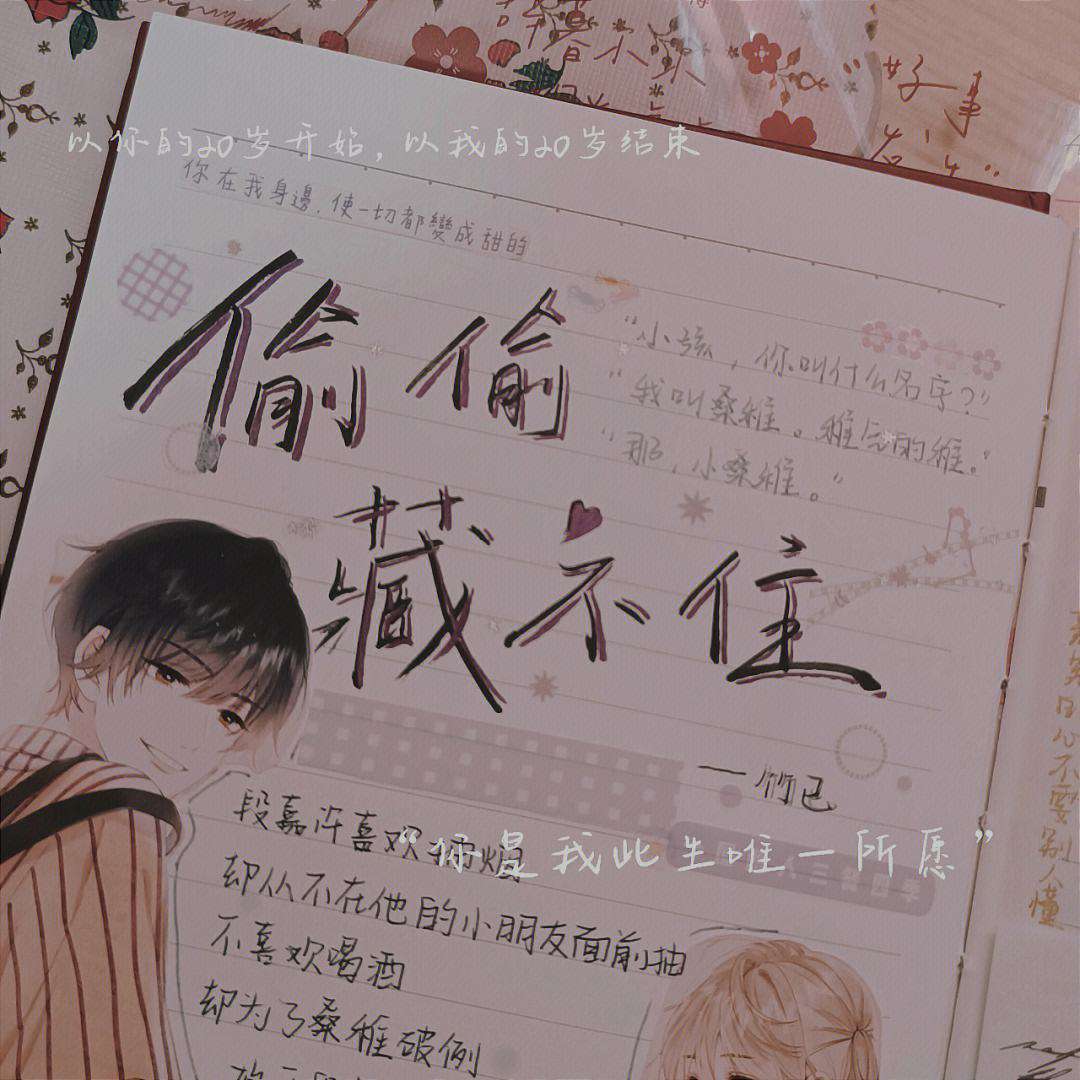 许
以你的20岁开始,以我的20岁结束
你在我身邊,使一切都變成甜的
偷偷
藏不住
"小孩,你叫什么名字?"
"我叫桑稚。稚气的稚。"
"那,小桑稚。"
——竹已
段嘉许喜欢抽烟
"你是我此生唯一所愿"
却从不在他的小朋友面前抽
不喜欢喝酒
却为了桑稚破例
好事
不要别人懂